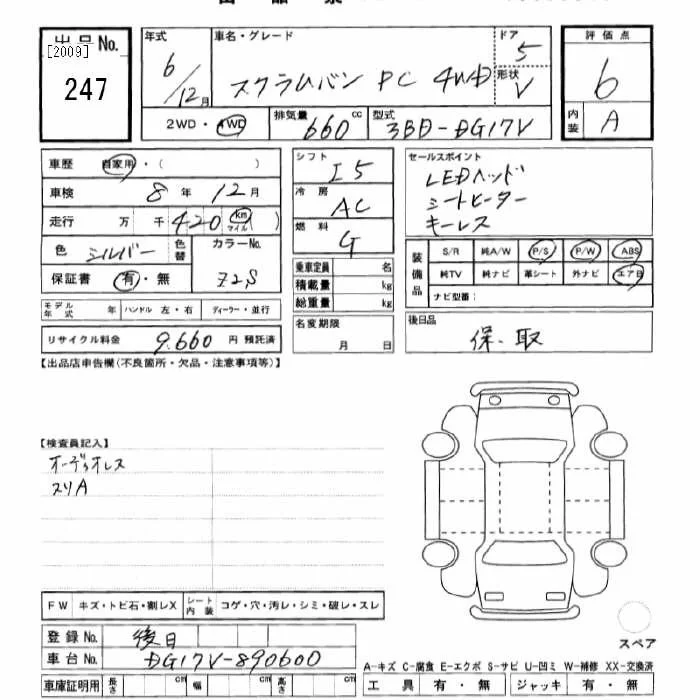 出品No.
[2009]
247
年式 車名・グレード ドア 評価点
6/12月 スクラムバン PC 4WD 5 形状 V 6
2WD・4WD 排気量 660 cc 型式 3BD-DG17V 内装 A
車歴 自家用・( ) シフト I5 セールスポイント
LEDヘッド
シートヒーター
キーレス
車検 8年 12月 冷房 AC
走行 万 千 420 km マイル( ) 燃料 G
色 シルバー 色替 カラーNo. Z2S
保証書 有・無
装備品 S/R 純A/W P/S P/W ABS
純TV 純ナビ 革シート 外ナビ エアB
ナビ型番:
乗車定員 名
積載量 kg
総重量 kg
モデル年式 年 ハンドル 左・右 ディーラー・並行
名変期限 月 日
後日品 保、取
リサイクル料金 9.660 円 預託済
【出品店申告欄(不良箇所・欠品・注意事項等)】
【検査員記入】
オーディオレス
スリA
FW キズ・トビ石・割レX シート内装 コゲ・穴・汚レ・シミ・破レ・スレ
スペア
登録No. 後日
車台No. DG17V-890600
車庫証明用 長さ cm 幅 cm 高さ cm
A-キズ C-腐食 E-エクボ S-サビ U-凹ミ W-補修 XX-交換済
工具 有・無 ジャッキ 有・無